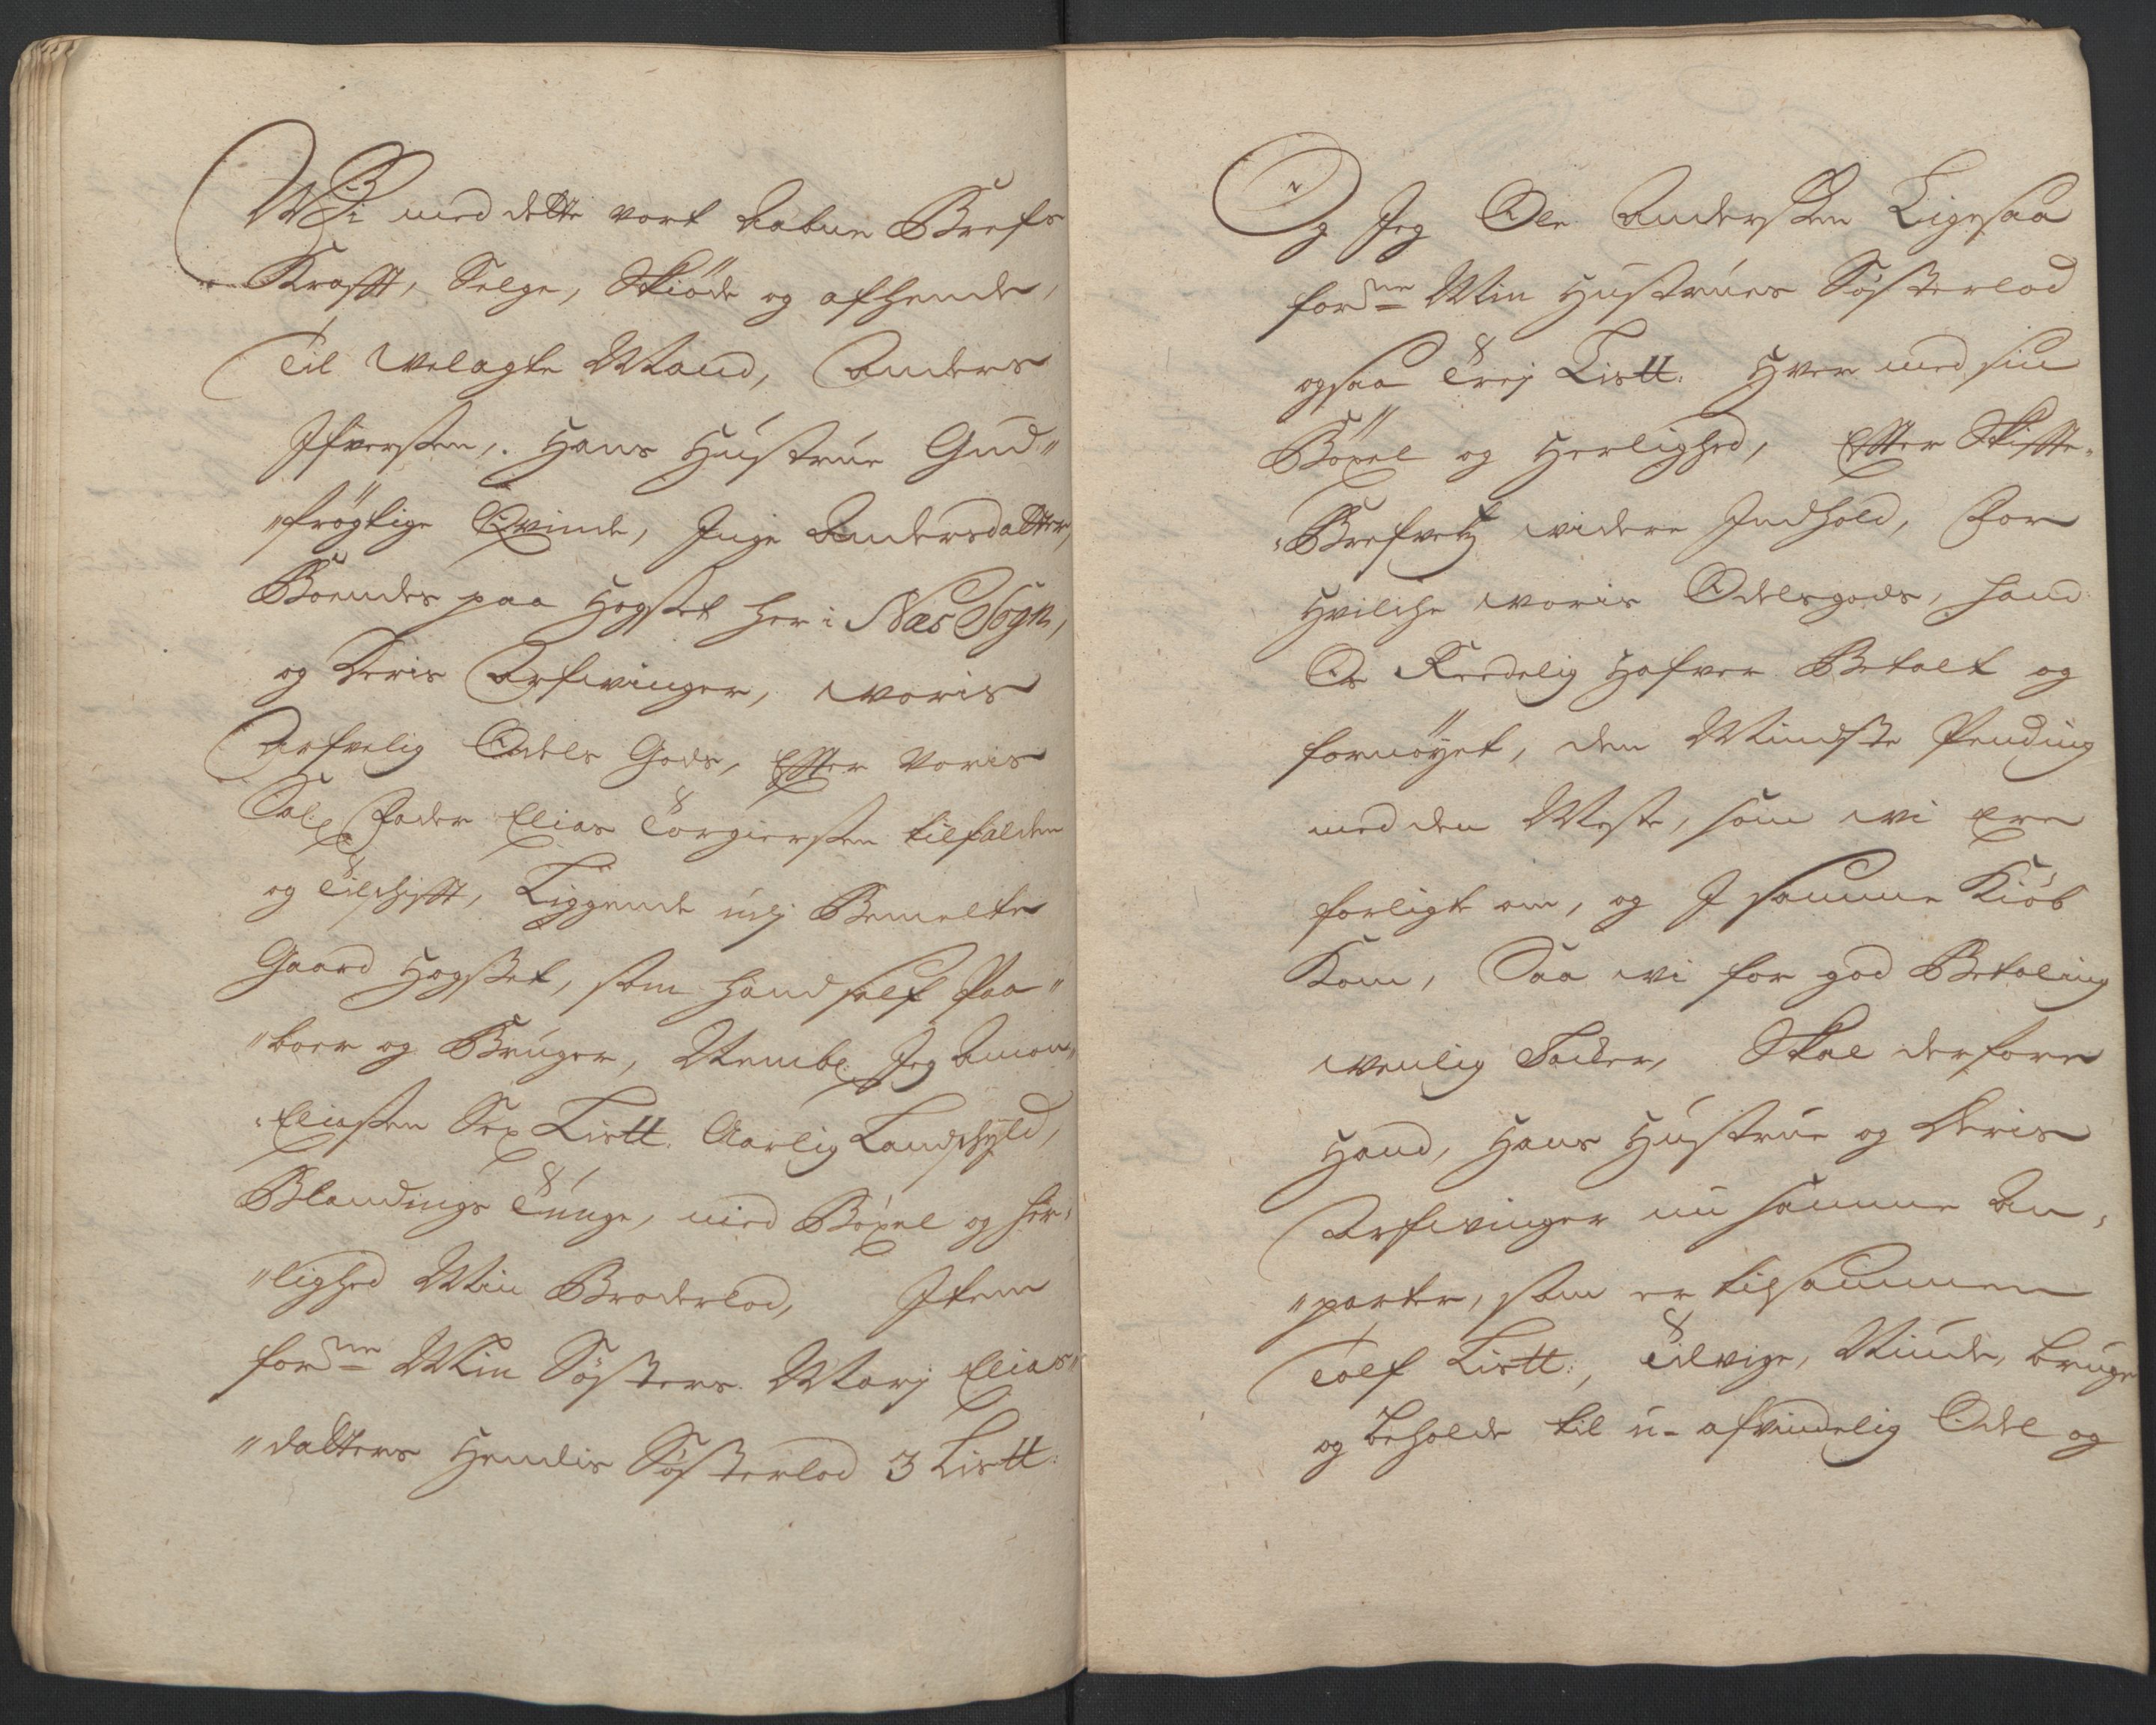 Wi med dette vort Aabne Brefs
Krafft, Selge, Skiöde og afhende,
Til Welagte Mand, Anders
Ifversen, Hans Hústrúe Gud"
"frögtige Qvinde, Inge Andersdatter,
Böendes paa Hogset her i Næs Sogn,
og Deris Arfwinger, Woris
Arfvelig Odels Gods, Effter Voris
Sal: Fader Elias Torgiersen tilfalden
og Tilskifft, Liggende udj Bemelte
Gaard Hogset, som hand self Paa"
"boer og Brúger, Nembl. Jeg Amon"
"Eliasen Sex Lis℔. Aarlig Landskyld,
Blandings Túnge, med Böxel og Her"
"lighed Min Broderlod, Item
fordne Min Sösters Marj Elias"
"datters Hendis Sösterlod 3 Lis℔:
Og Jeg Ole Andersen Ligesaa
fordne Min Hústrúes Sösterlod
ogsaa Trej Lis℔: Hver med sin
Böxel og Herlighed, Effter Skiffte"
"Brefvetz widere Indhold, For
Hvilche woris Odelsgods, hand
Os Reedelig Hafver Betalt og
fornöyet, den Mindste Pending
med den Meste, som wi Ere
forligte om, og I samme Kiöb
Kom, Saa wi for god Betaling
wenlig Tacker, Skal derfore
Hand, Hans Hústrúe og Deris
Arfwinger nú samme An"
"parter, som er tilsammen
Tolf Lis℔:, Tileige, Niúde, brúge
og beholde til ú-afvindelig Odel og